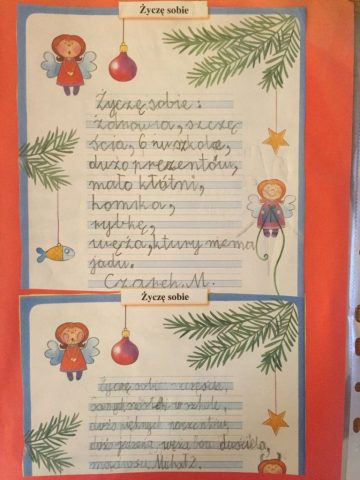 Życzę sobie
Życzę sobie:
Zdrowia, szczę
ścia, 6 w szkole,
dużo prezentów,
mało kłótni,
homika,
rybkę,
węża, ktury mema
jadu.
Czarek. M.
Życzę sobie
Życzę sobie szczęścia,
samych szóstek w szkole,
dużo prezentów,
węża boa dusiciela,
Michał Ż.